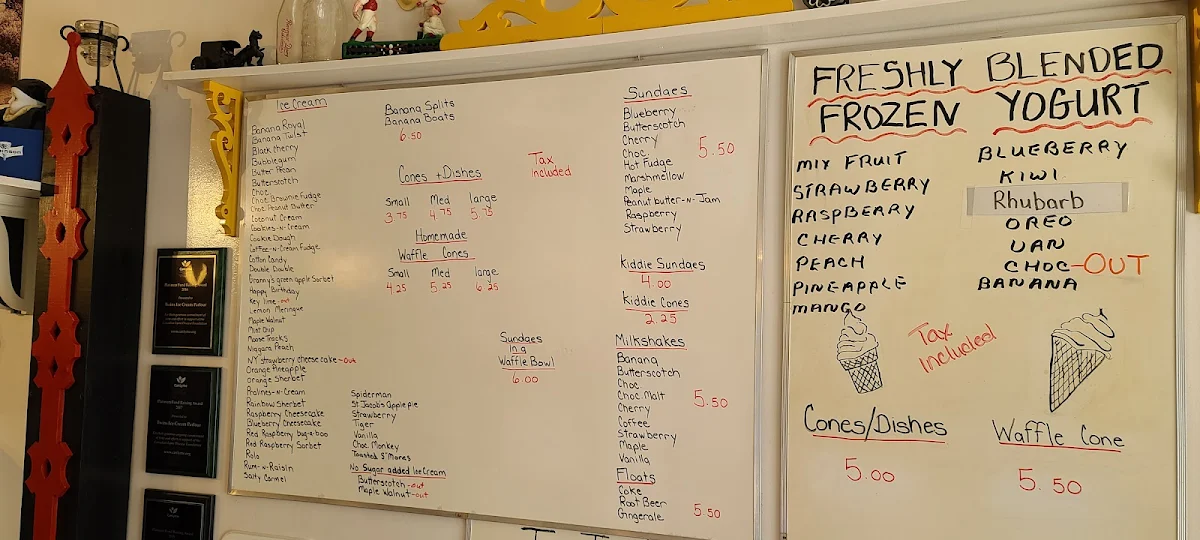 Ice Cream
Banana Royal
Banana Twist
Black Cherry
Bubblegum
Butter Pecan
Butterscotch
Choc
Choc Brownie Fudge
Choc Peanut Butter
Coconut Cream
Cookies-n-Cream
Cookie Dough
Coffee-n-Cream Fudge
Cotton Candy
Double Double
Granny's green apple Sorbet
Happy Birthday
Key lime-out
Lemon Meringue
Maple Walnut
Mint Chip
Moose Tracks
Niagara Peach
NY strawberry cheese cake-out
Orange Pineapple
Orange Sherbet
Pralines-n-Cream
Rainbow Sherbet
Raspberry Cheesecake
Blueberry Cheesecake
Red Raspberry bug-a-boo
Red Raspberry Sorbet
Rolo
Rum-n-Raisin
Salty Carmel
Spiderman
St Jacob's Apple pie
Strawberry
Tiger
Vanilla
Choc Monkey
Toasted S'Mores
No Sugar added Ice Cream
Butterscotch-out
Maple Walnut-out
Banana Splits
Banana Boats
6.50
Cones + Dishes
Small Med large
3.75 4.75 5.75
Homemade
Waffle Cones
Small Med large
4.25 5.25 6.25
Tax
Included
Sundaes
in a
Waffle Bowl
6.00
Sundaes
Blueberry
Butterscotch
Cherry
Choc
Hot Fudge
Marshmellow
Maple
Peanut butter-n-Jam
Raspberry
Strawberry
5.50
Kiddie Sundaes
4.00
Kiddie Cones
2.25
Milkshakes
Banana
Butterscotch
Choc
Choc Malt
Cherry
Coffee
Strawberry
Maple
Vanilla
5.50
Floats
Coke
Root Beer
Gingerale
5.50
FRESHLY BLENDED
FROZEN YOGURT
MIX FRUIT
STRAWBERRY
RASPBERRY
CHERRY
PEACH
PINEAPPLE
MANGO
BLUEBERRY
KIWI
Rhubarb
OREO
VAN
CHOC-OUT
BANANA
Tax
Included
Cones/Dishes
5.00
Waffle Cone
5.50